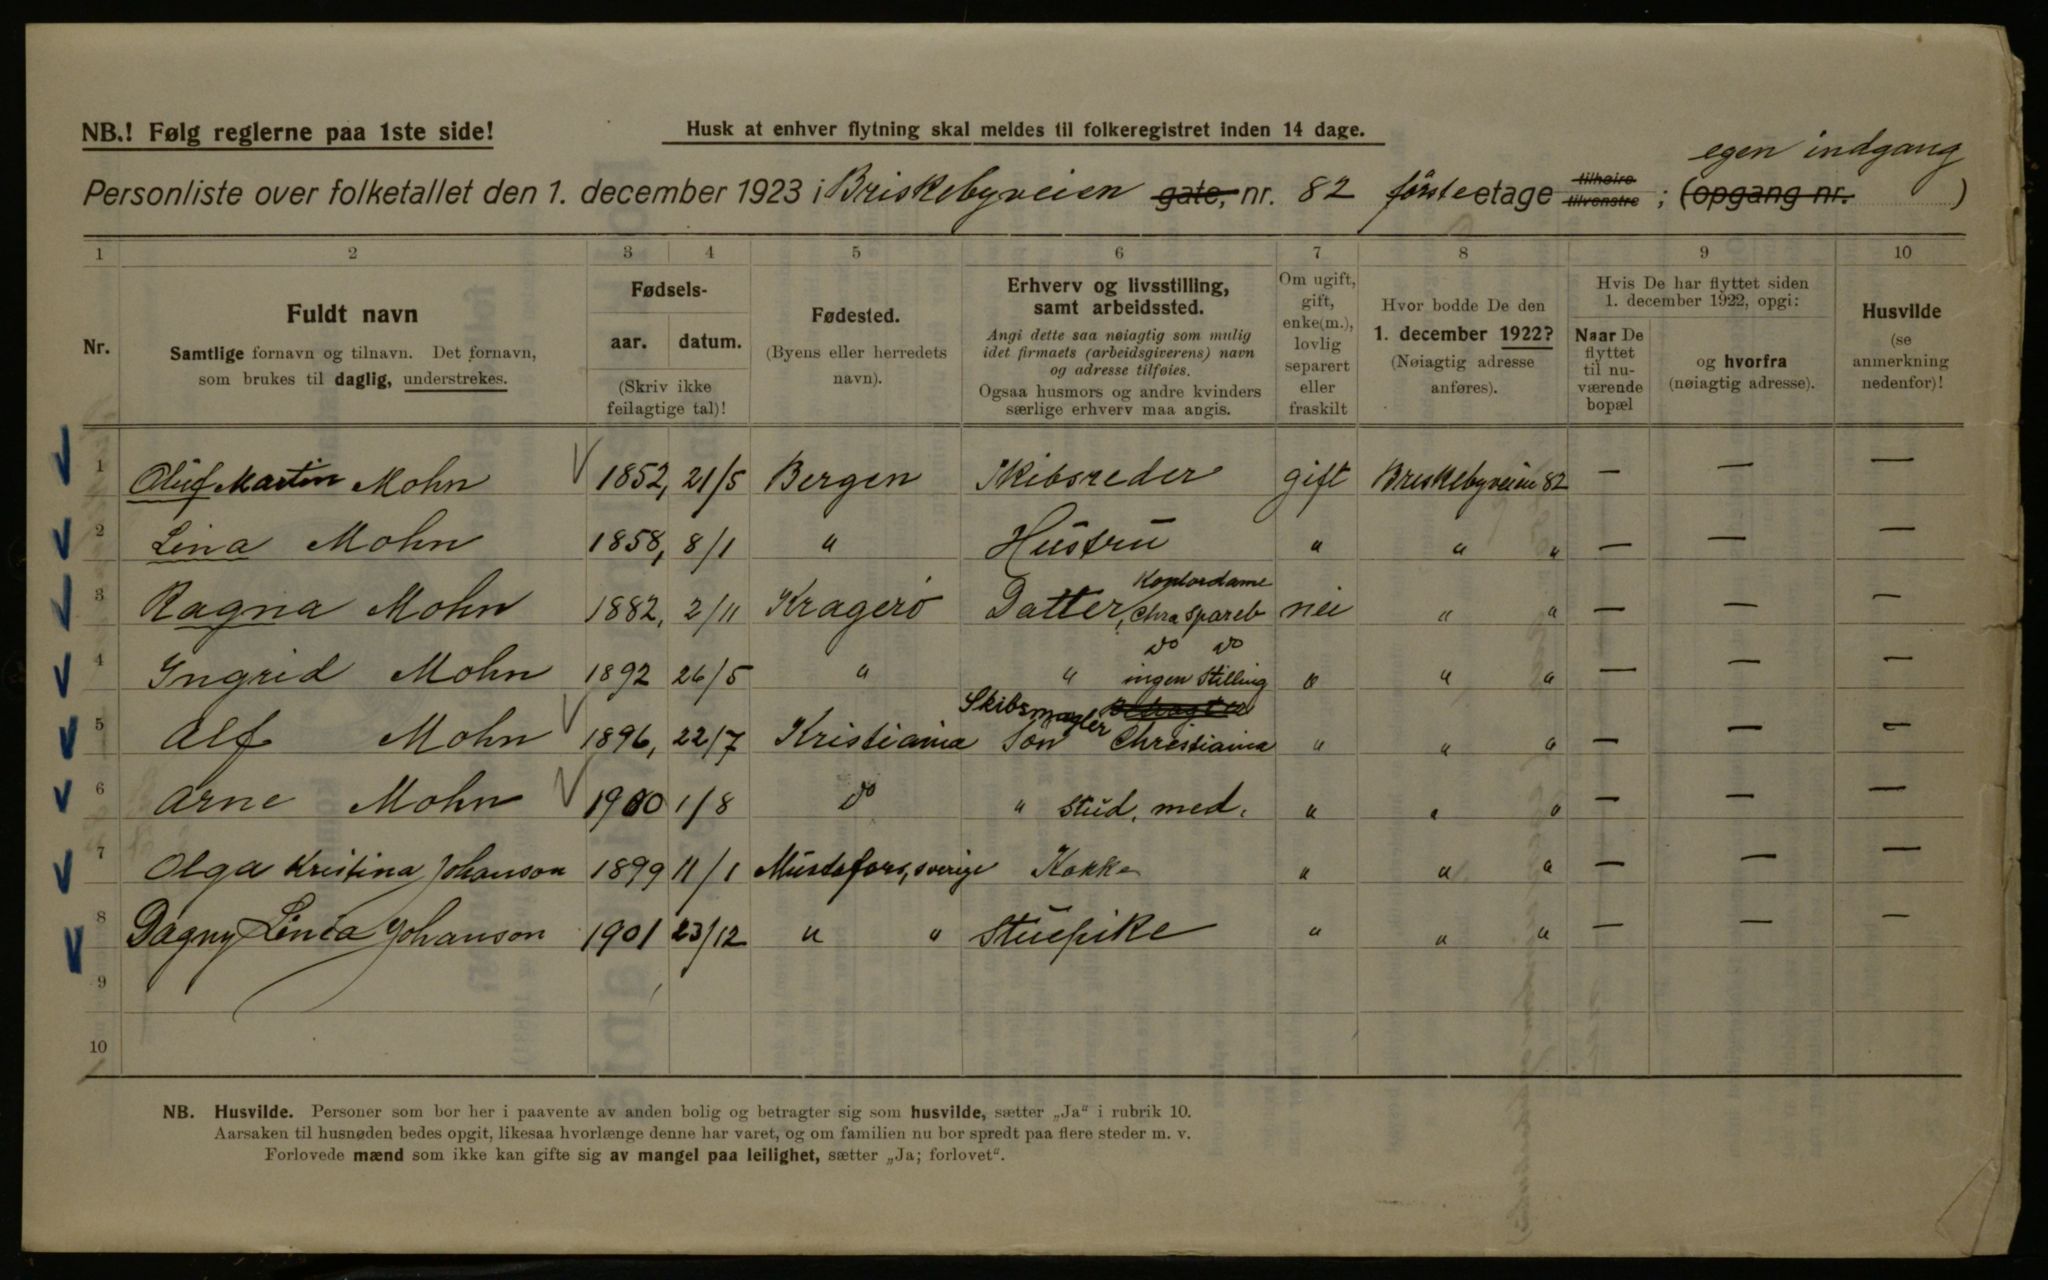 NB.! Følg reglerne paa 1ste side!
Husk at enhver flytning skal meldes til folkeregistret inden 14 dage.
egen indgang
Personliste over folketallet den 1. december 1923 i Briskebyveien gate, nr. 82 förste etage tilhøire tilvenstre ; (opgang nr. )
1 2 3 4 5 6 7 8 9 10
Nr.
Fuldt navn
Samtlige fornavn og tilnavn. Det fornavn,
som brukes til daglig, understrekes.
Fødsels-
aar. datum.
(Skriv ikke
feilagtige tal)!
Fødested.
(Byens eller herredets
navn).
Erhverv og livsstilling,
samt arbeidssted.
Angi dette saa nøiagtig som mulig
idet firmaets (arbeidsgiverens) navn
og adresse tilføies.
Ogsaa husmors og andre kvinders
særlige erhverv maa angis.
Om ugift,
gift,
enke(m.),
lovlig
separert
eller
fraskilt
Hvor bodde De den
1. december 1922?
(Nøiagtig adresse
anføres).
Hvis De har flyttet siden
1. december 1922, opgi:
Naar De
flyttet
til nu-
værende
bopæl
og hvorfra
(nøiagtig adresse).
Husvilde
(se
anmerkning
nedenfor)!
1 Oluf Martin Mohn 1852, 21/5 Bergen Skibsreder gift Briskebyveien 82 — — —
2 Lina Mohn 1858, 8/1 " Hustru " " " — — —
Kontordame
3 Ragna Mohn 1882, 2/11 Kragerö Datter, Chra Spareb nei " " — — —
do do
4 Ingrid Mohn 1892 26/5 " " ingen Stilling " " " — — —
Skibsmægler
5 Alf Mohn 1896, 22/7 Kristiania Sön Christiania " " " — — —
6 Arne Mohn 1900 1/8 do " stud. med. " " " — — —
7 Olga Kristina Johanson 1899 11/1 Mustafors, Sverige Kokke " " " — — —
8 Dagny Linea Johanson 1901 23/12 " " Stuepike " " " — — —
9
10
NB. Husvilde. Personer som bor her i paavente av anden bolig og betragter sig som husvilde, sætter „Ja“ i rubrik 10.
Aarsaken til husnøden bedes opgit, likesaa hvorlænge denne har varet, og om familien nu bor spredt paa flere steder m. v.
Forlovede mænd som ikke kan gifte sig av mangel paa leilighet, sætter „Ja; forlovet“.